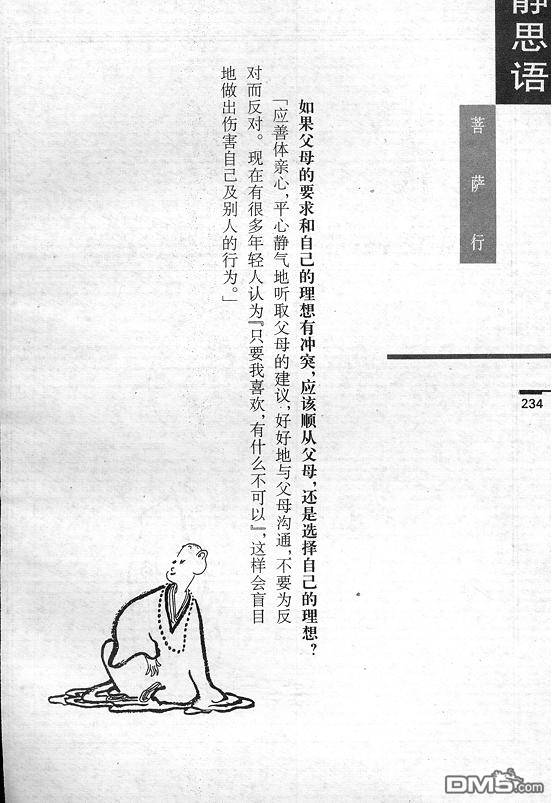 静思语
菩萨行
234
如果父母的要求和自己的理想有冲突，应该顺从父母，还是选择自己的理想？
「应善体亲心，平心静气地听取父母的建议，好好地与父母沟通，不要为反
对而反对。现在有很多年轻人认为『只要我喜欢，有什么不可以』，这样会盲目
地做出伤害自己及别人的行为。」
DM5.com